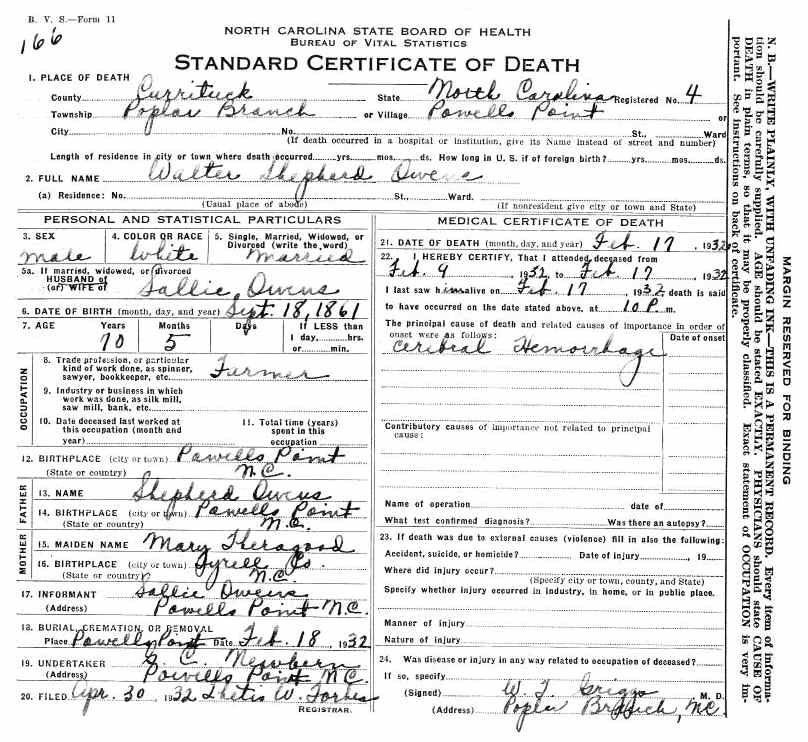 B. V. S.—Form 11
166
NORTH CAROLINA STATE BOARD OF HEALTH
BUREAU OF VITAL STATISTICS
STANDARD CERTIFICATE OF DEATH
1. PLACE OF DEATH
County Currituck State North Carolina Registered No. 4
Township Poplar Branch or Village Powells Point or
City No. St., Ward
(If death occurred in a hospital or institution, give its Name instead of street and number)
Length of residence in city or town where death occurred yrs. mos. ds. How long in U. S. if of foreign birth? yrs. mos. ds.
2. FULL NAME Walter Shepherd Owens
(a) Residence: No. St., Ward.
(Usual place of abode) (If nonresident give city or town and State)
PERSONAL AND STATISTICAL PARTICULARS
3. SEX 4. COLOR OR RACE 5. Single, Married, Widowed, or
Divorced (write the word)
male White Married
5a. If married, widowed, or divorced
HUSBAND of
(or) WIFE of Sallie Owens
6. DATE OF BIRTH (month, day, and year) Sept. 18, 1861
7. AGE Years Months Days If LESS than
1 day, hrs.
or min.
70 5
OCCUPATION
8. Trade profession, or particular
kind of work done, as spinner,
sawyer, bookkeeper, etc. Farmer
9. Industry or business in which
work was done, as silk mill,
saw mill, bank, etc.
10. Date deceased last worked at
this occupation (month and
year)
11. Total time (years)
spent in this
occupation
12. BIRTHPLACE (city or town) Powells Point
(State or country) N.C.
FATHER
13. NAME Shepherd Owens
14. BIRTHPLACE (city or town) Powells Point
(State or country) N.C.
MOTHER
15. MAIDEN NAME Mary Theragood
16. BIRTHPLACE (city or town) Tyrell Co.
(State or country) N.C.
17. INFORMANT Sallie Owens
(Address) Powells Point N.C.
18. BURIAL, CREMATION, OR REMOVAL
Place Powells Point Date Feb. 18, 1932
19. UNDERTAKER C. Newbern
(Address) Powells Point N.C.
20. FILED Apr. 30, 1932 Thetis W. Forbes
REGISTRAR.
MEDICAL CERTIFICATE OF DEATH
21. DATE OF DEATH (month, day, and year) Feb. 17, 1932
22. I HEREBY CERTIFY, That I attended deceased from
Feb. 9, 1932, to Feb. 17, 1932
I last saw him alive on Feb. 17, 1932, death is said
to have occurred on the date stated above, at 10 P. m.
The principal cause of death and related causes of importance in order of
onset were as follows: Date of onset
Ceribral Hemorrhage
Contributory causes of importance not related to principal
cause:
Name of operation date of
What test confirmed diagnosis? Was there an autopsy?
23. If death was due to external causes (violence) fill in also the following:
Accident, suicide, or homicide? Date of injury , 19
Where did injury occur?
(Specify city or town, county, and State)
Specify whether injury occurred in industry, in home, or in public place.
Manner of injury
Nature of injury
24. Was disease or injury in any way related to occupation of deceased?
If so, specify
(Signed) W. T. Griggs M. D.
(Address) Poplar Branch, N.C.
MARGIN RESERVED FOR BINDING
N. B.—WRITE PLAINLY, WITH UNFADING INK—THIS IS A PERMANENT RECORD. Every item of informa-
tion should be carefully supplied. AGE should be stated EXACTLY. PHYSICIANS should state CAUSE OF
DEATH in plain terms, so that it may be properly classified. Exact statement of OCCUPATION is very im-
portant. See instructions on back of certificate.